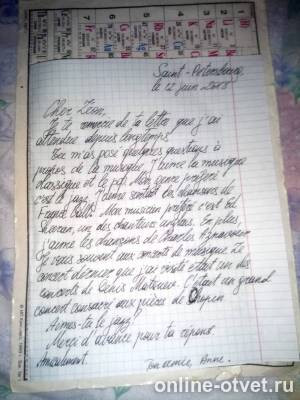 Saint-Petersbourg,
le 12 juin 2018
Cher Léon,
Je te remercie de ta lettre que j'ai
attendue depuis longtemps!
Tu m'as posé quelques questions à
propos de la musique. J'aime la musique
classique et le pop. Mon genre préféré
c'est le jazz. J'aime surtout les chansons de
France Gall! Mon musicien préféré c'est Ed
Sheeran, un des chanteurs anglais. En plus,
j'aime les chansons de Charles Aznavour
Je vais souvent aux concerts de musique. Le
concert dernier que j'ai visité était un des
concerts de Denis Matsuev. C'était un grand
concert consacré aux pièces de Chopin
Aimes-tu le jazz?
Merci d'avance pour ta réponse.
Amicalement.
Ton amie, Anne.
online-otvet.ru